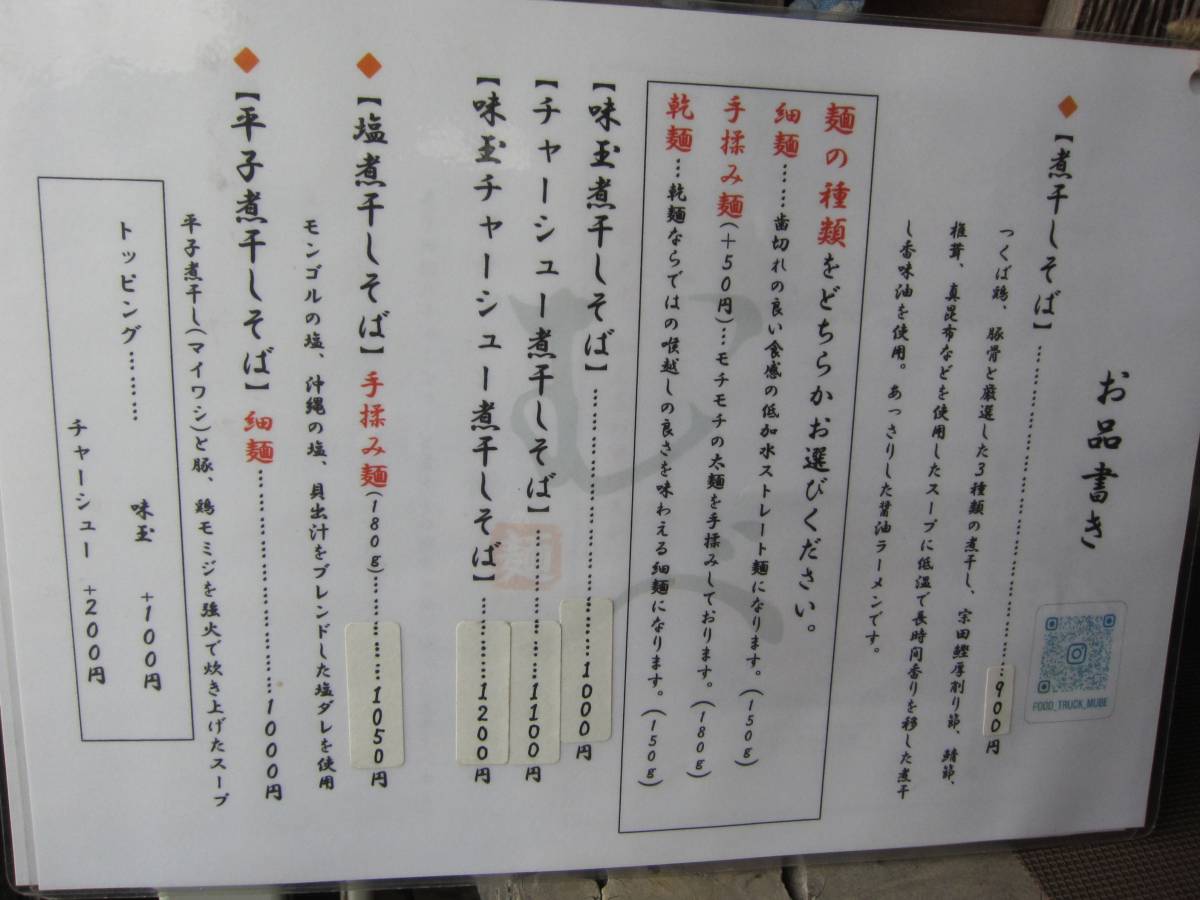 お品書き
FOOD_TRUCK_MUBE
◆【煮干しそば】……………………………900円
つくば鶏、豚骨と厳選した3種類の煮干し、宗田鰹厚削り節、鯖節、
椎茸、真昆布などを使用したスープに低温で長時間香りを移した煮干
し香味油を使用。あっさりした醤油ラーメンです。
麺の種類をどちらかお選びください。
細麺……歯切れの良い食感の低加水ストレート麺になります。(150g)
手揉み麺(+50円)…モチモチの太麺を手揉みしております。(180g)
乾麺…乾麺ならではの喉越しの良さを味わえる細麺になります。(150g)
【味玉煮干しそば】……………………1000円
【チャーシュー煮干しそば】…………1100円
【味玉チャーシュー煮干しそば】………1200円
◆【塩煮干しそば】手揉み麺(180g)………1050円
モンゴルの塩、沖縄の塩、貝出汁をブレンドした塩ダレを使用
◆【平子煮干しそば】細麺……………………1000円
平子煮干し(マイワシ)と豚、鶏モミジを強火で炊き上げたスープ
トッピング………味玉 +100円
チャーシュー +200円
むべ
麺